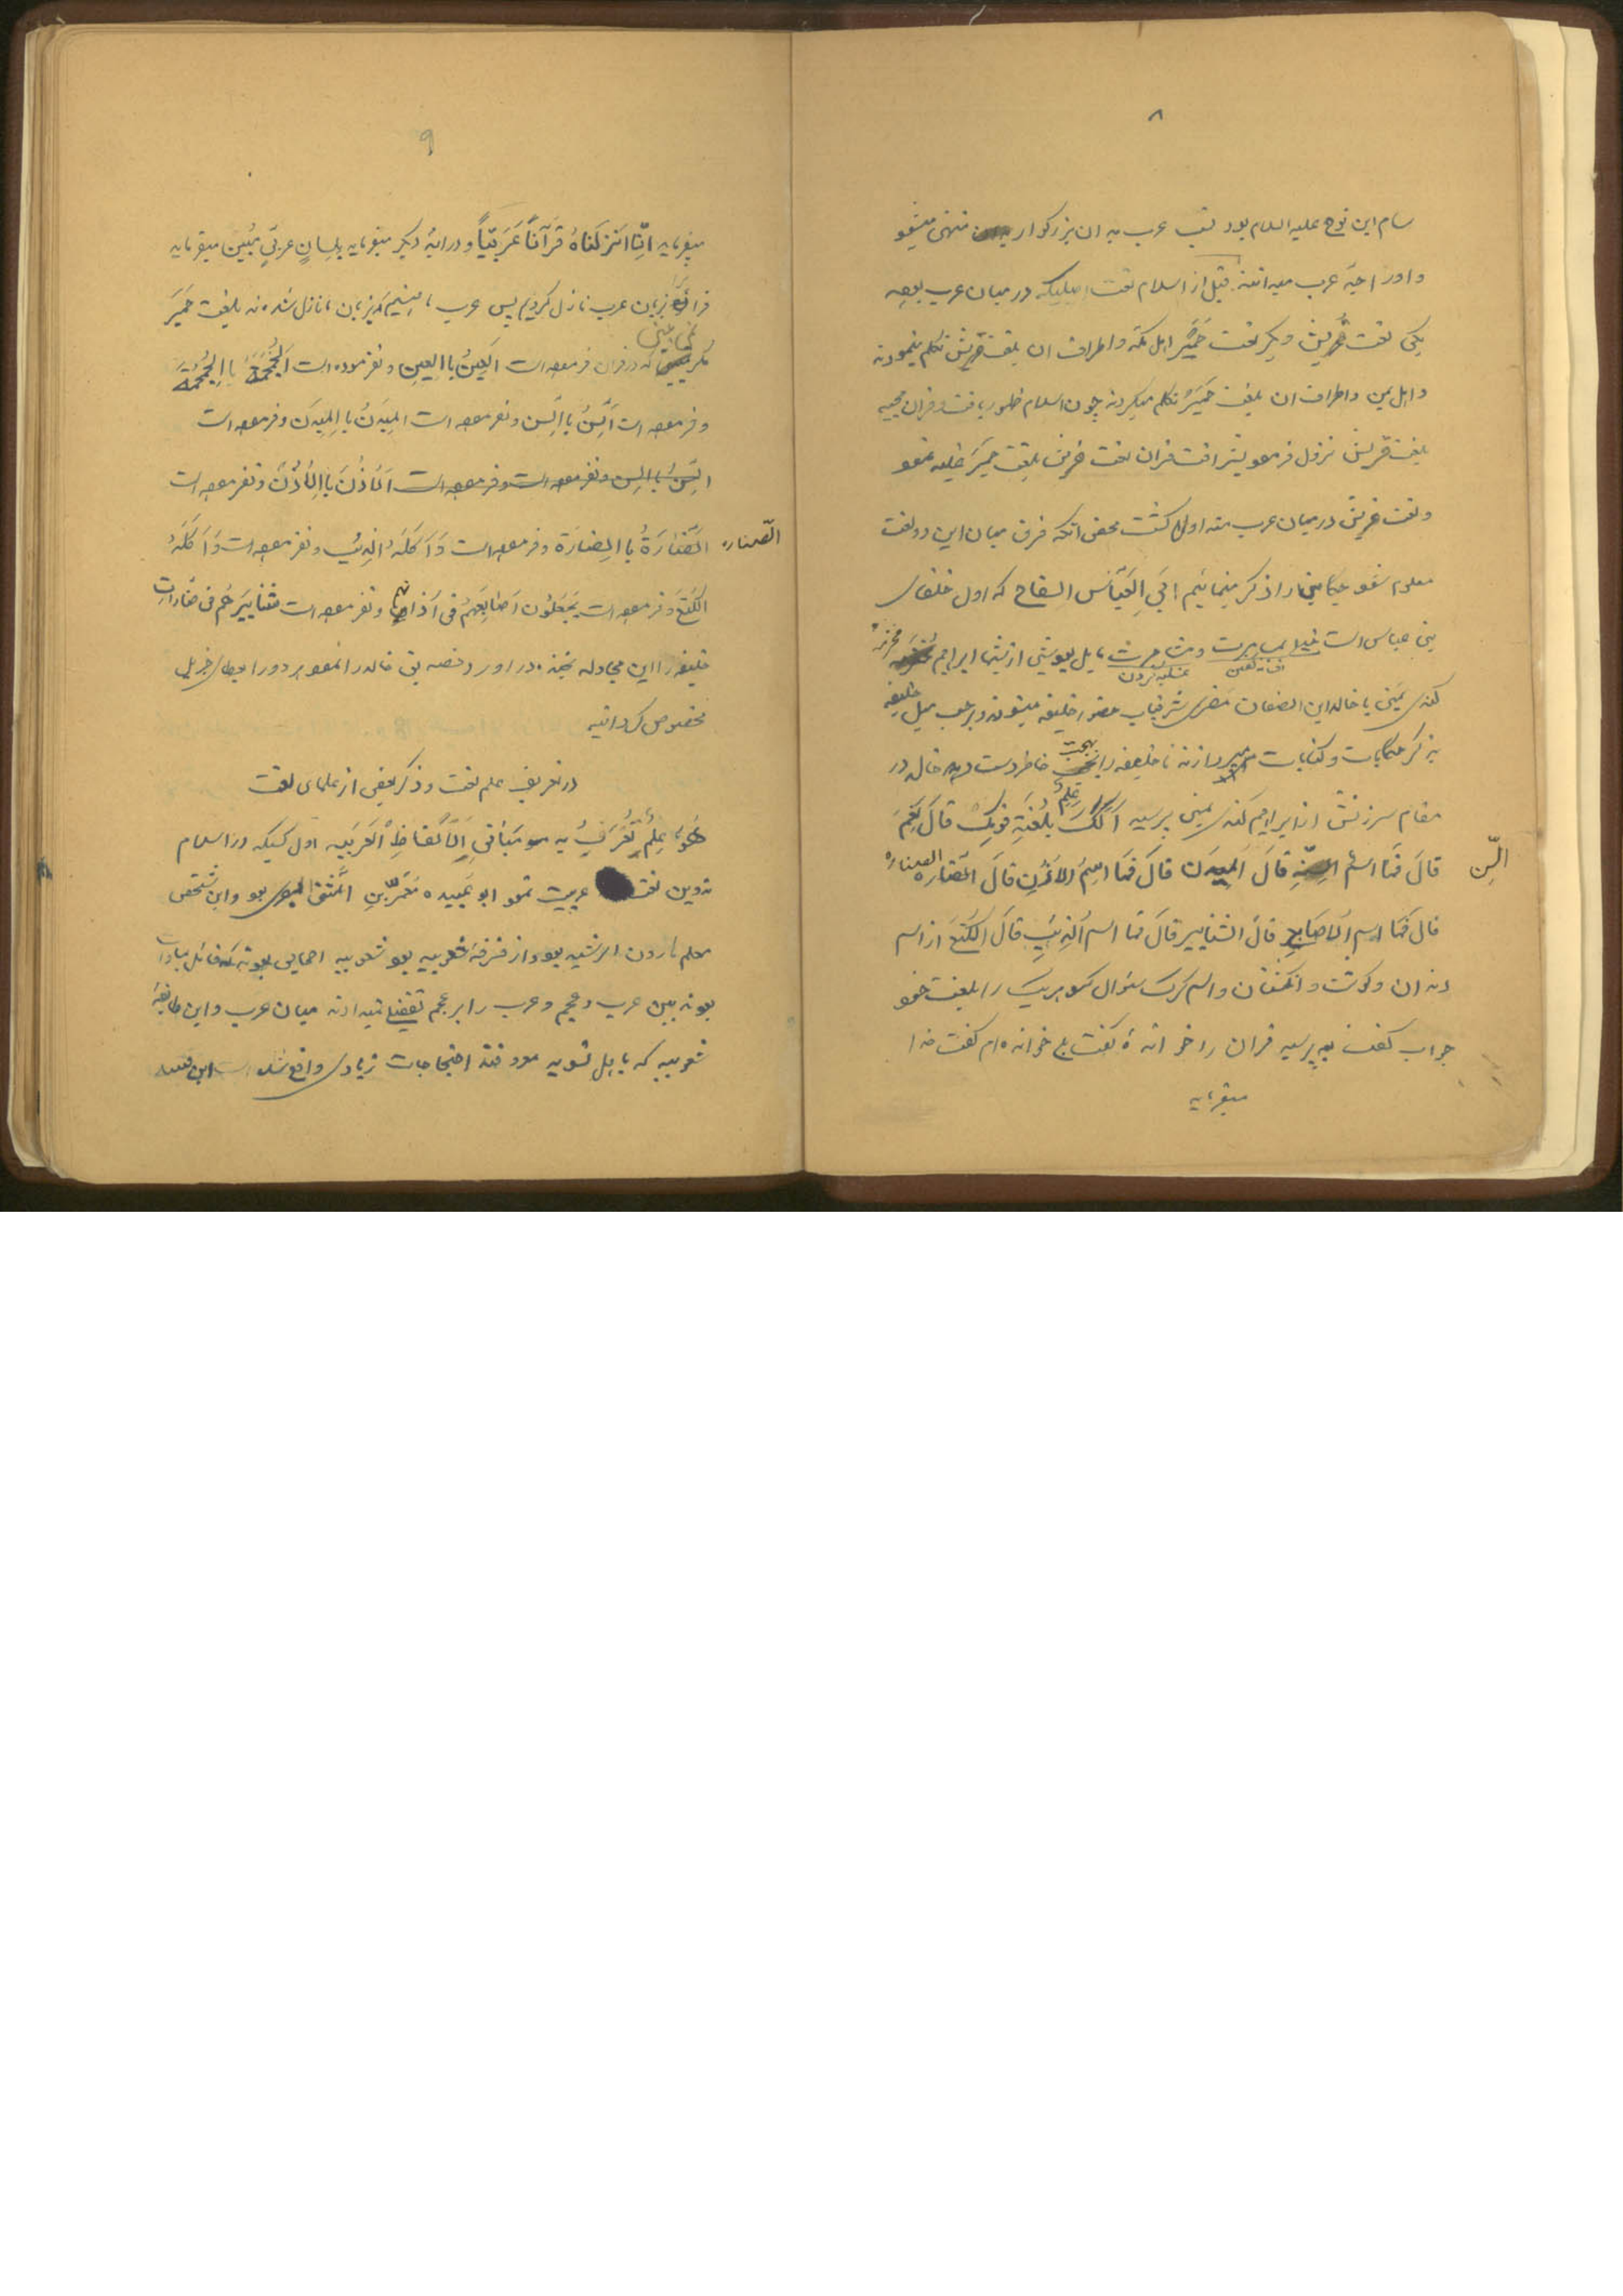 ۸
سام ابن نوح علیه السلام بود نسب عرب به ان بزرکوار منتهی میشود
و اورا جد عرب میدانند قبل از اسلام لغت اصلیکه در میان عرب بوده
یکی لغت قُریش و دیکر لغت حَمیَر اهل مکه و اطراف ان بلغت قریش تکلم مینمودند
و اهل یمن و اطراف ان بلغت حَمیَر تکلم میکردند چون اسلام ظهور یافت و قران مجید
بلغت قریش نزول فرمود بشرافت قران لغت قریش بلغت حمیَر غلبه نمود
و لغت قریش در میان عرب متداول کشت محض آنکه فرق میان این دو لغت
معلوم شود حکایتی را ذکر مینمائیم ابی العَبّاس السفاح که اول خلفای
بنی عباس است بمسامرت و مایل بود شبی از شبها ابراهیم مخرمه
کندی یَمَنی با خالد ابن الصفوان مضری شرفیاب حضور خلیفه میشوند و بر حسب میل خلیفه
بذکر حکایات و کنایات میپردازند تا خلیفه را بهجت خاطر دست دهد خالد در
مقام سرزنش از ابراهیم کندی یمنی پرسید اَلَکَ عِلمٌ بلُغَةِ قومِکَ قالَ نَعَم
السِّن
قالَ فَمَا اسمُ قالَ المیدَن قالَ فَمَا اسمُ الاُذُنِ قالَ الصّنارَه
قال فَمَا اسم الاَصَابِع قالَ الشناتیر قالَ فَمَا اسم الذِئبِ قالَ الکُتَع از اسم
دندان و کوش و انکشتان و اسم کرک سئوال نمود هریک را بلغت خود
جواب کفت پرسید قران را خوانده کفت بلی خوانده ام کفت خدا
میفرماید
۹
میفرماید انّا انزلناهُ قرآناً عَرَبیّاً و در ایهٔ دیکر میفرماید بِلِسانٍ عربیٍ مُبین میفرماید
قران را بزبان عرب نازل کردیم پس عرب ما هستیم که بزبان ما نازل شده نه بلغت حمیَر
نمی بینی که در قران فرموده است العَینُ باالعین و نفرموده است الجُمجُمَةُ باالجُمجُمَة
و فرموده است السِّنُ باالسِّن و نفرموده است المیدَنُ باالمیدَن و فرموده است
السِّنُ باالسِن و نفرموده است و فرموده است الاُذُنَ باالاُذُن و نفرموده است
الصّنارَه
الصّنارَةُ باالصِنارَة و فرموده است وَاَکَلَهُ الذِئب و نفرموده است وَاَکَلَهُ
الکُتَع و فرموده است یَجعَلُون اَصابِعَهُم فی آذانِهِم و نفرموده است شَناتیرَهُم فی صِنّاراتِ
خلیفه را این مجادله بخنده در اورد
مخصوص کردانید
در تعریف علم لغت و ذکر بعضی از علمای لغت
هُوَ عِلمٌ یُعرَفُ بِه مَبانی اَلاَلفاظِ العَرَبیه اول کسیکه در اسلام
تدوین لغت عربیت نمود ابو عُبیده مُعَمّر بنِ المثنّی بود و این شخص
معلم هارون الرشید بود و از فرقهٔ شعوبیه بود شعوبیه جماعتی بودند که قائل بمساوات
بودند بین عرب و عجم و عرب را بر عجم تفضیل نمیدادند میان عرب و این طایفهٔ
شعوبیه که باهل تسویه معروفند احتجاجات زیادی واقع شده است